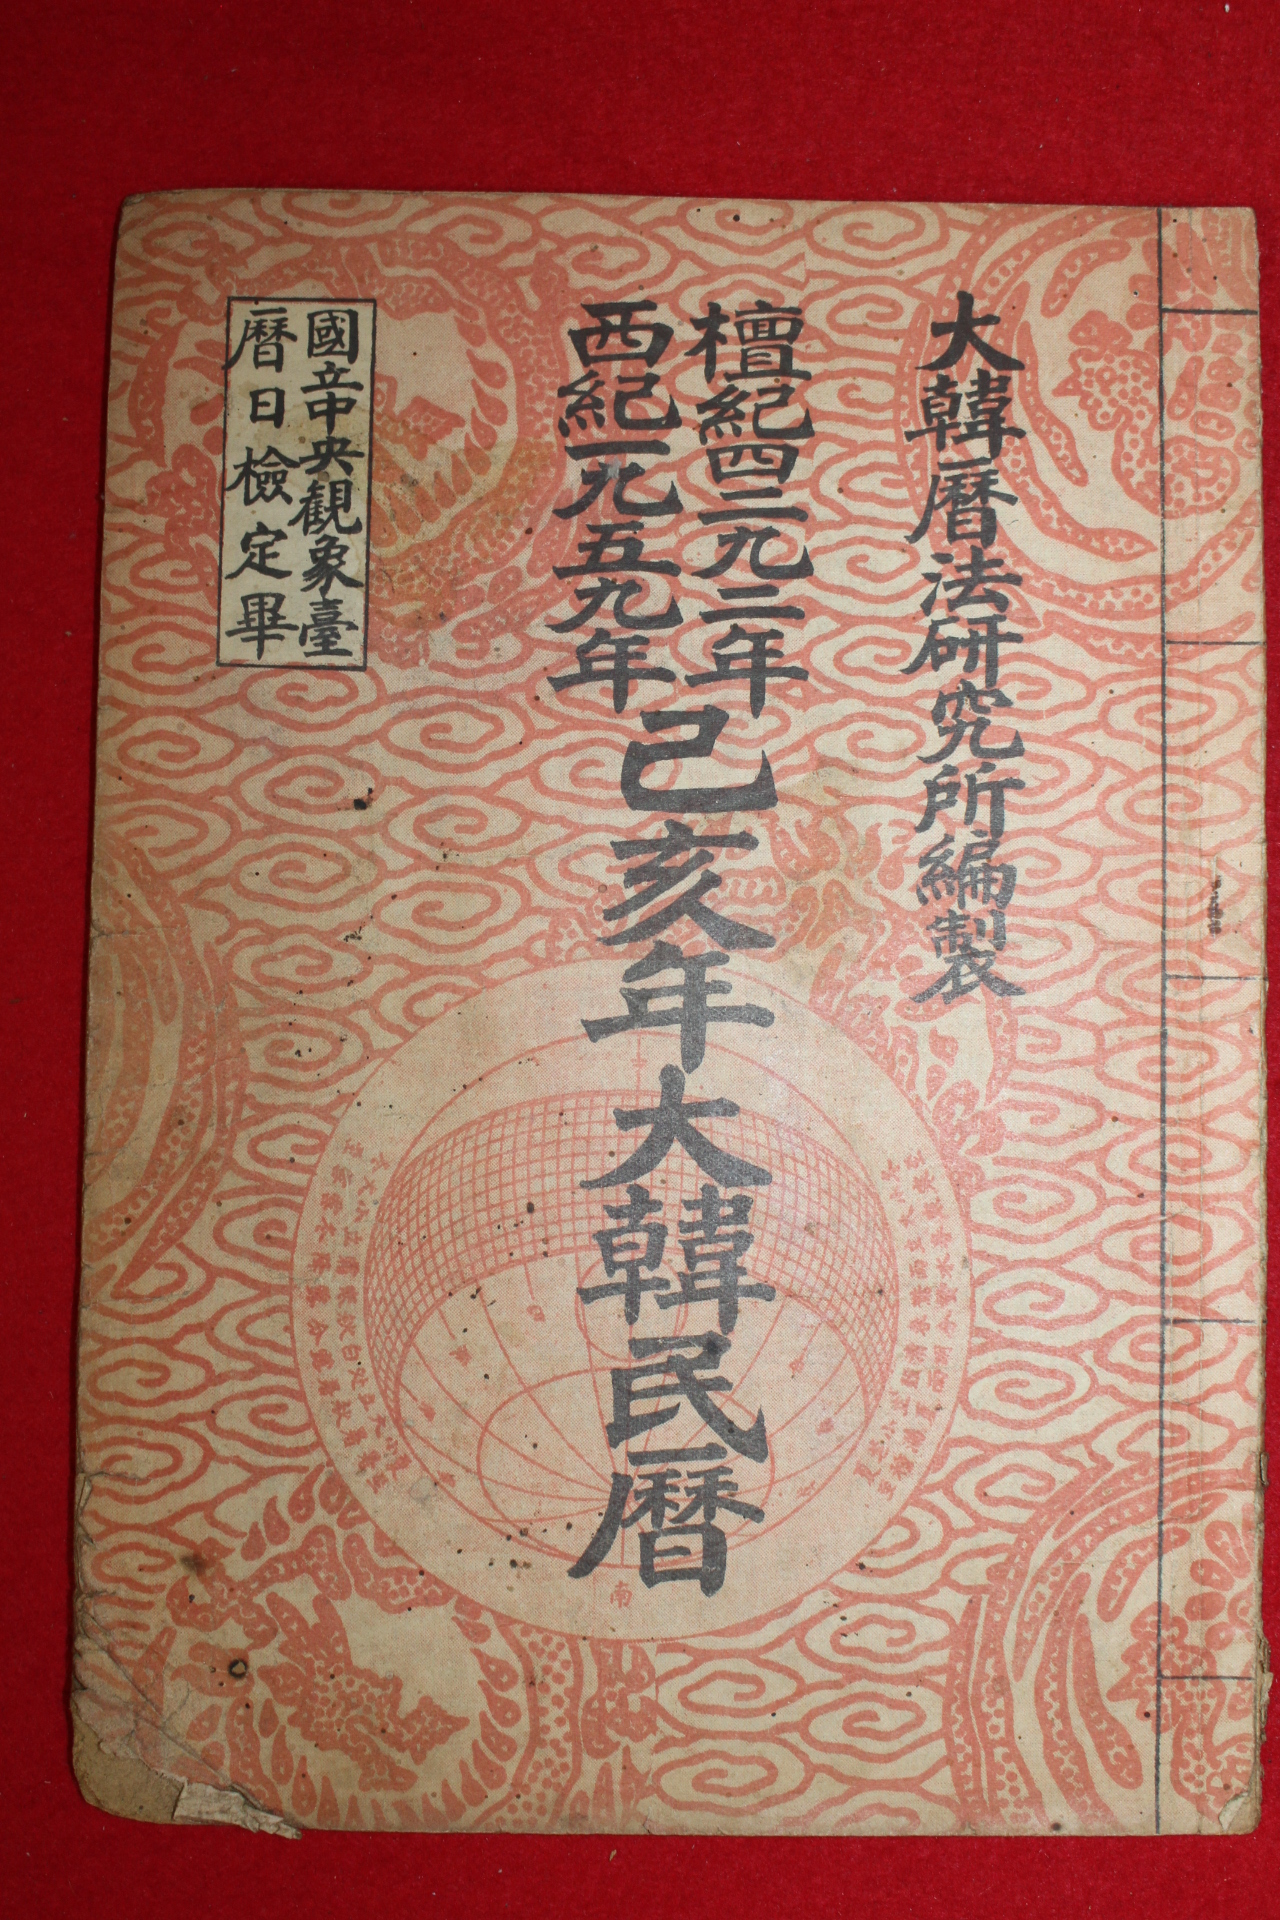 大韓曆法硏究所編製
檀紀四二九二年
西紀一九五九年
己亥年大韓民曆
國立中央觀象臺
曆日檢定畢
南